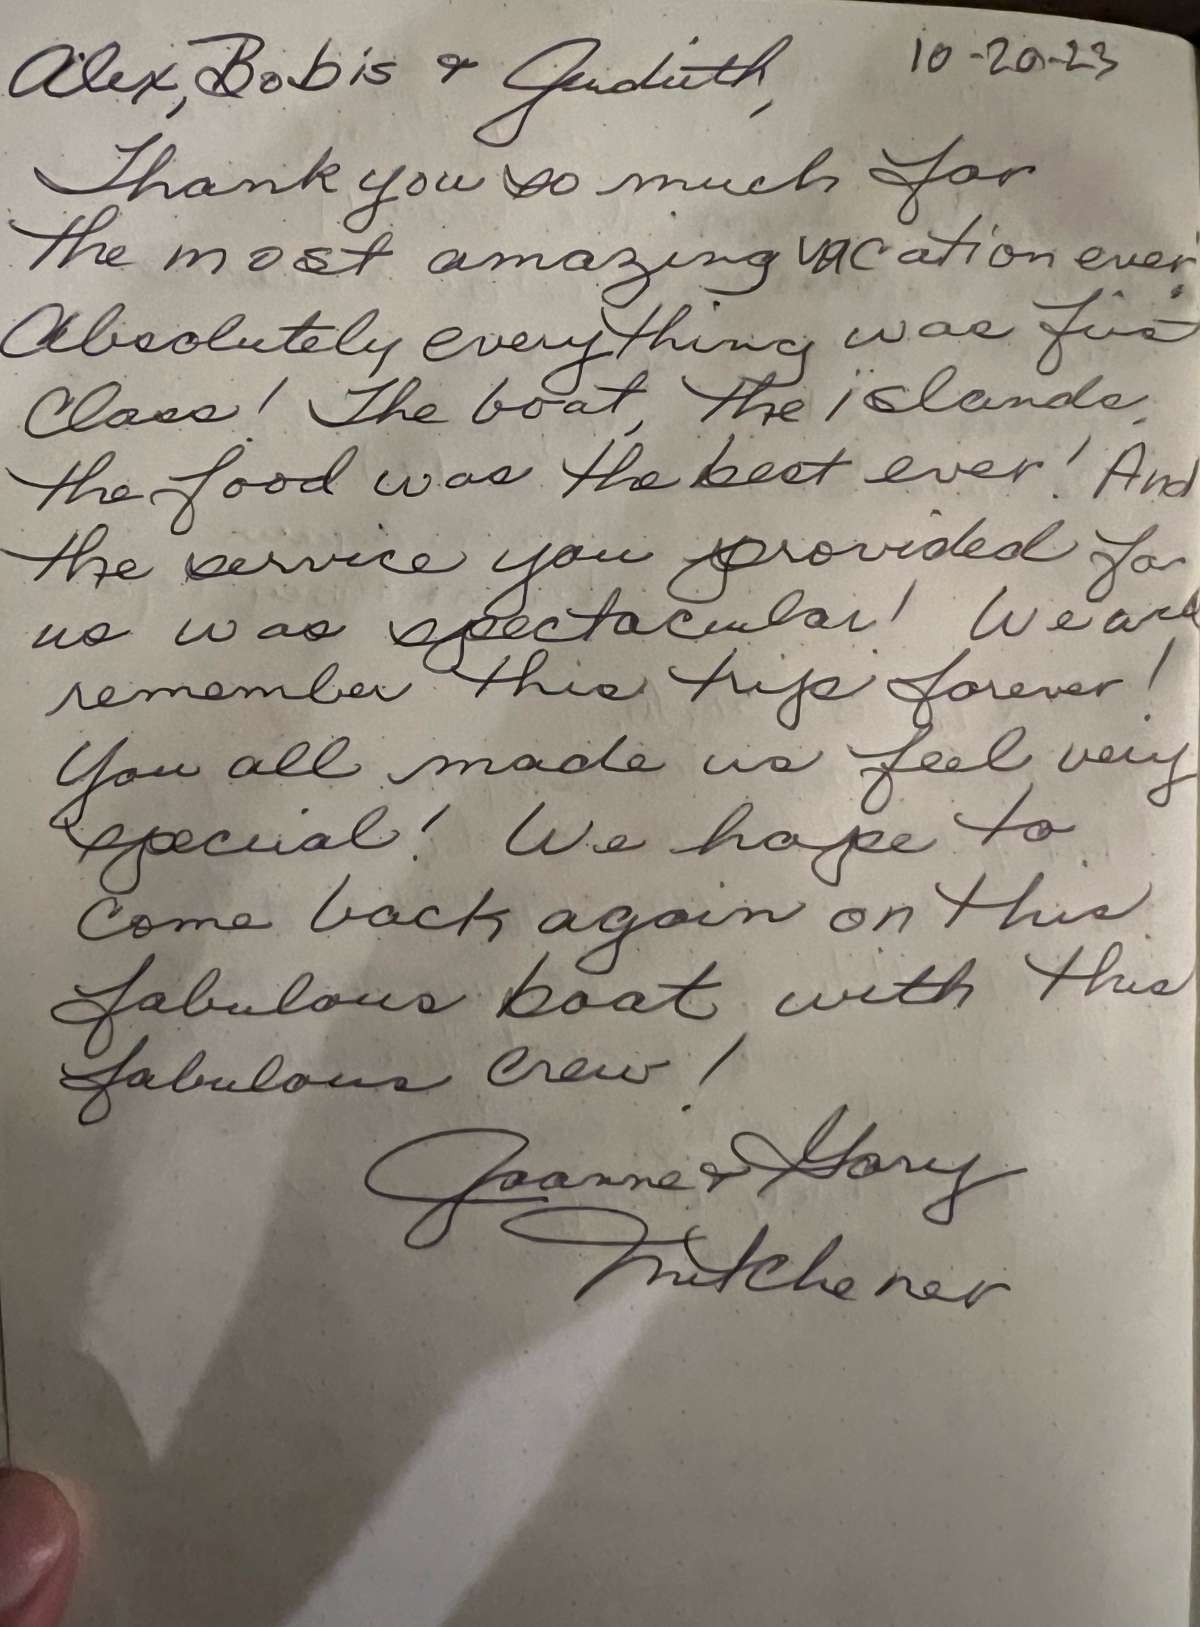 Alex, Bobis & Judith, 10-20-23
Thank you so much for
the most amazing vacation ever.
Absolutely everything was first
class! The boat, the islands,
the food was the best ever! And
the service you provided for
us was spectacular! We will
remember this trip forever!
You all made us feel very
special! We hope to
come back again on this
fabulous boat with this
fabulous crew!
Joanne & Gary
Mitchener